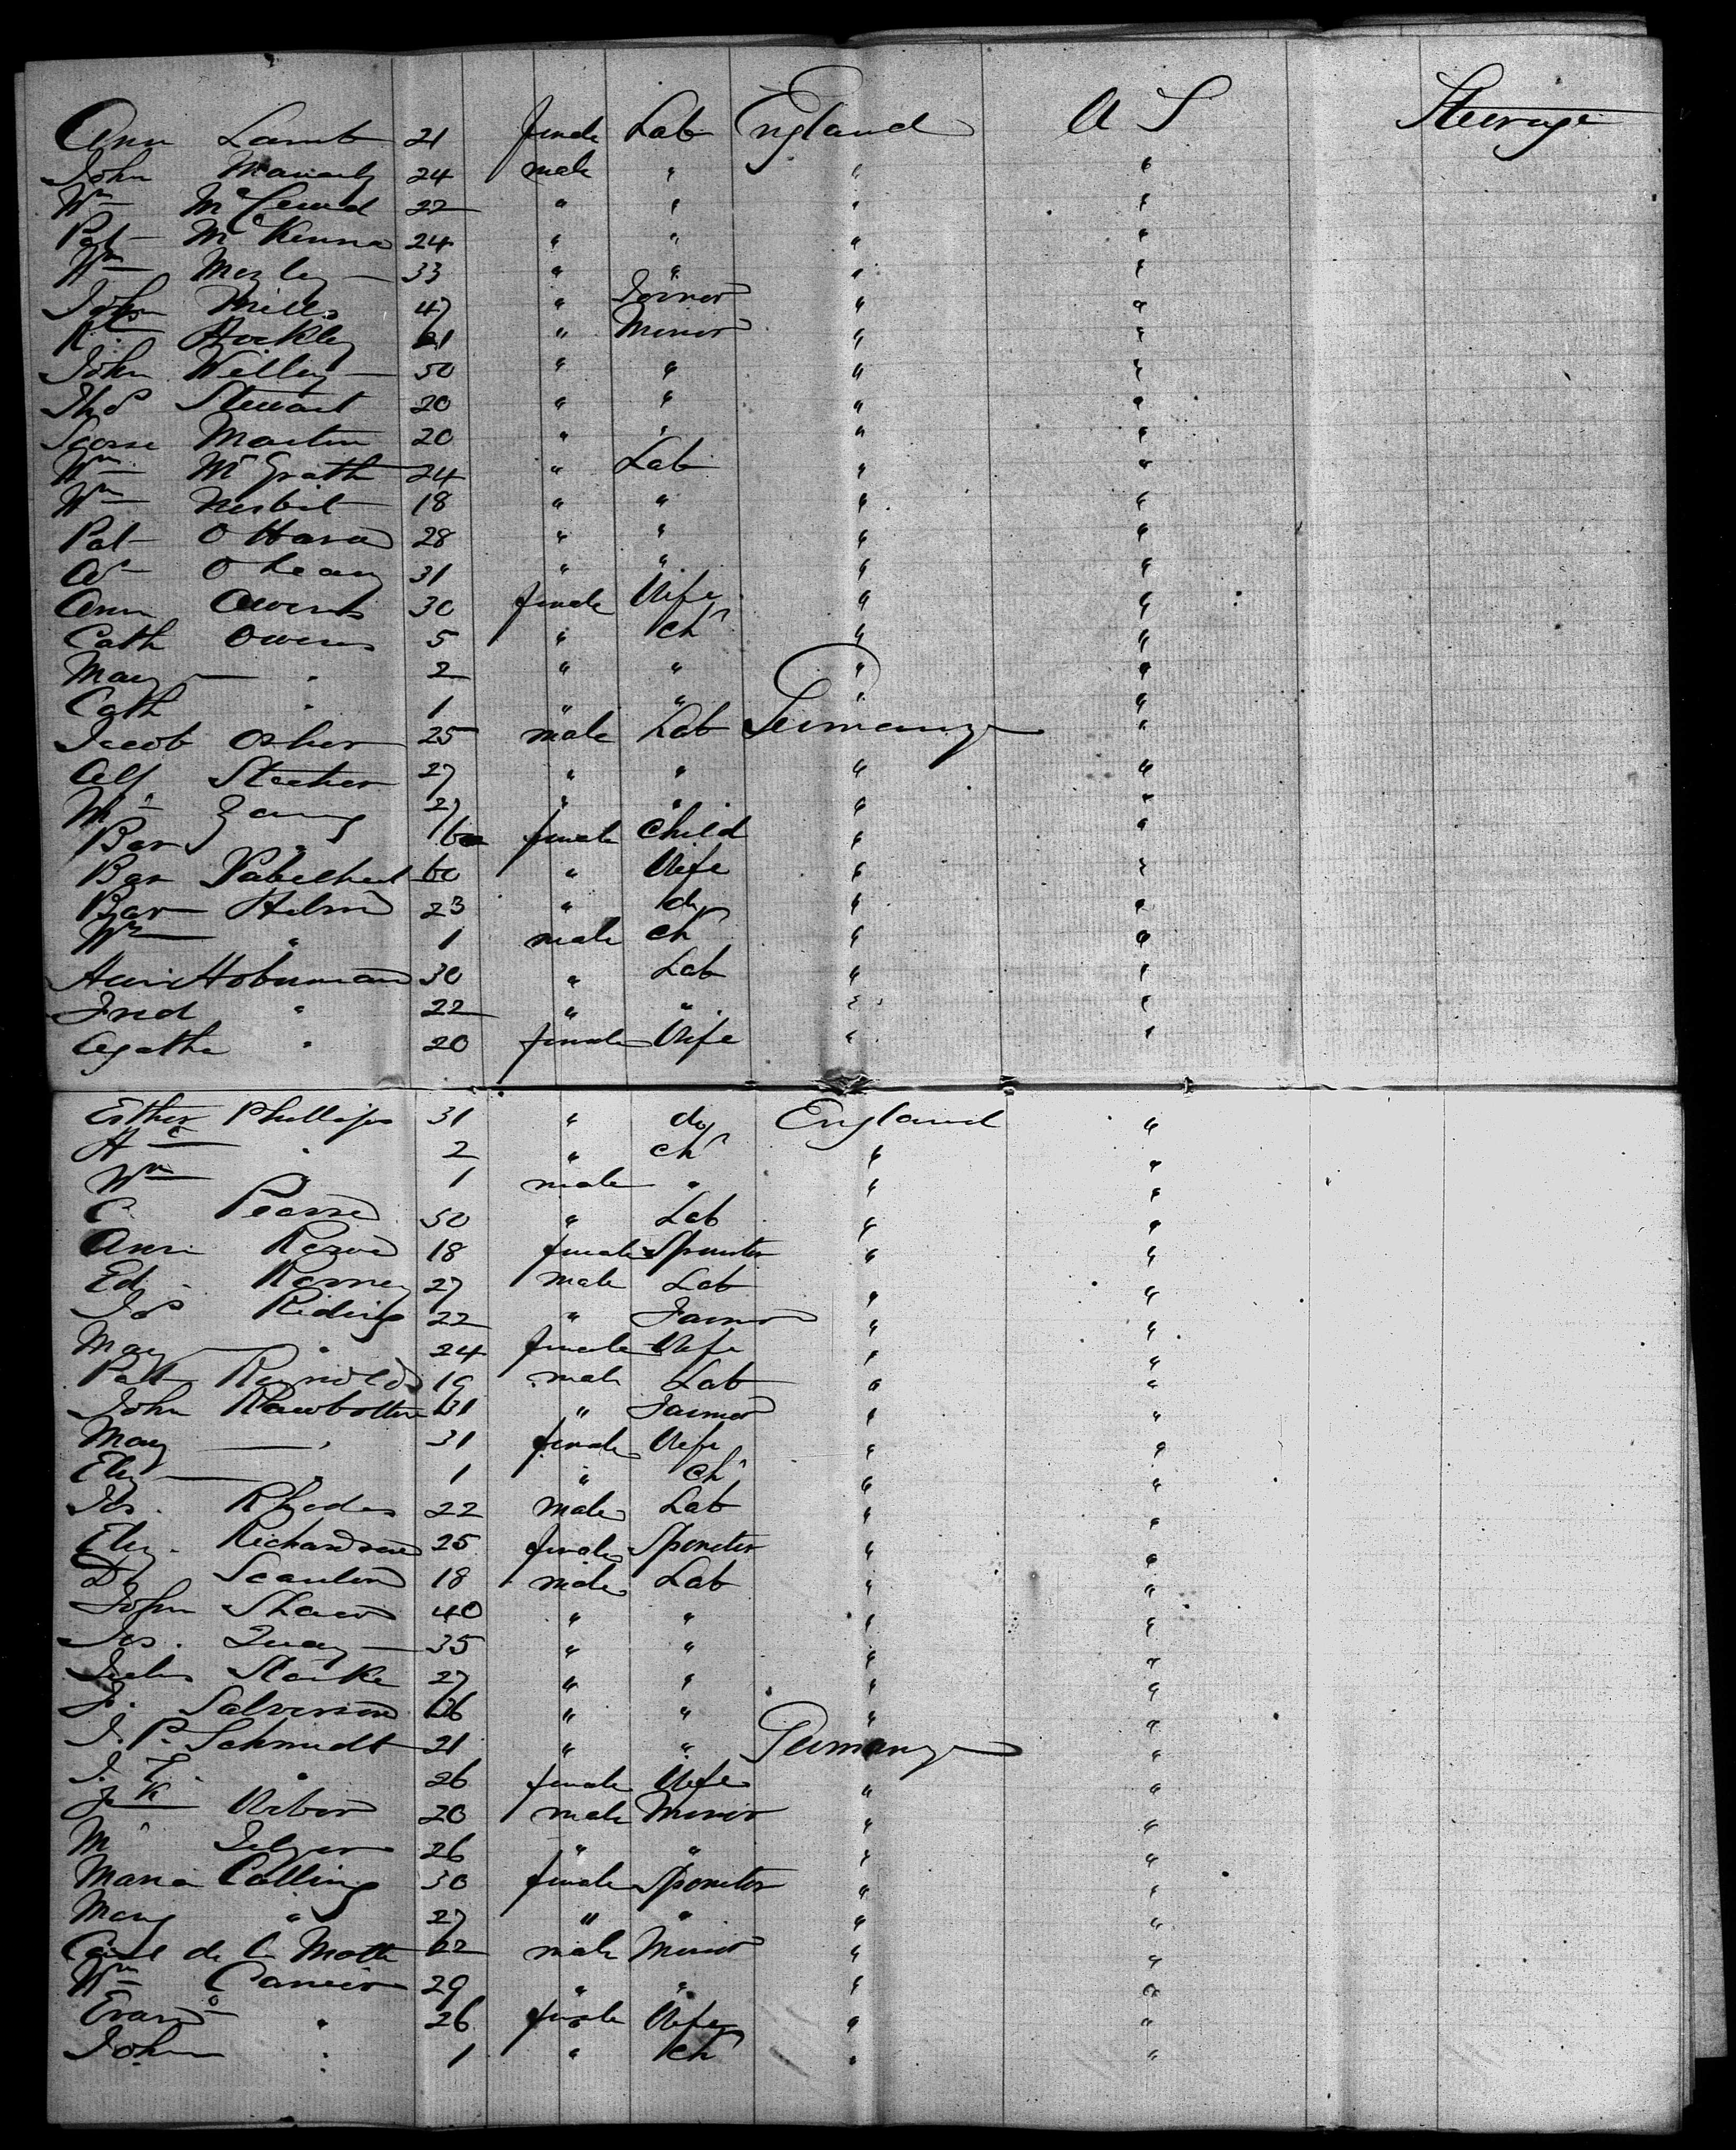 Ann Lamb 21 female Lab England U S Steerage
John Moriarty 24 male " " "
Wm 22 " " " "
Pat McKenna 24 " " " "
Wm Mozley 33 " " " "
John Mills 47 " Joiner " "
Hockley 21 " Miner " "
John Willey 50 " " " "
Thos Stewart 20 " " " "
George Martin 20 " " " "
Wm McGrath 24 " Lab " "
Wm Nesbit 18 " " " "
Pat O Hara 28 " " " "
O Leary 31 " " " "
Ann Owens 30 female Wife " "
Cath Owens 5 " Ch " "
Mary " 2 " " " "
Cath " 1 " " " "
Jacob Osher 25 male Lab Germany "
Alf Stecher 27 " " " "
Zang 27 " " " "
Bar " female Child " "
Bar 60 " Wife " "
Bar 23 " do " "
Wm " 1 male Ch " "
Hobnman 30 " Lab " "
Fred " 22 " " " "
Agatha " 20 female Wife " "
Esther Phillips 31 " do England "
" 2 " Ch " "
Wm " 1 male " " "
C. Pearse 50 " Lab " "
Ann 18 female Spinster " "
Ed. 27 male Lab " "
Jos Riding 22 " Farmer " "
Mary " 24 female Wife " "
Patk Reynolds 19 male Lab " "
John Rawbottom 31 " Farmer " "
Mary " 31 female Wife " "
Eliz " 1 " Ch " "
Jos. Rhodes 22 male Lab " "
Eliz. Richardson 25 female Spinster " "
D Scanlon 18 male Lab " "
John Shaw 40 " " " "
Jos. Quay 35 " " " "
Starke 27 " " " "
Salverson 26 " " " "
J. P. Schmidt 21 " " Germany "
J. T. " 26 female Wife " "
20 male Miner " "
26 " " " "
Maria Colling 30 female Spinster " "
Mary " 27 " " " "
de la Motte 22 male Miner " "
Wm 29 " " " "
" 26 female Wife " "
John " 1 " Ch " "